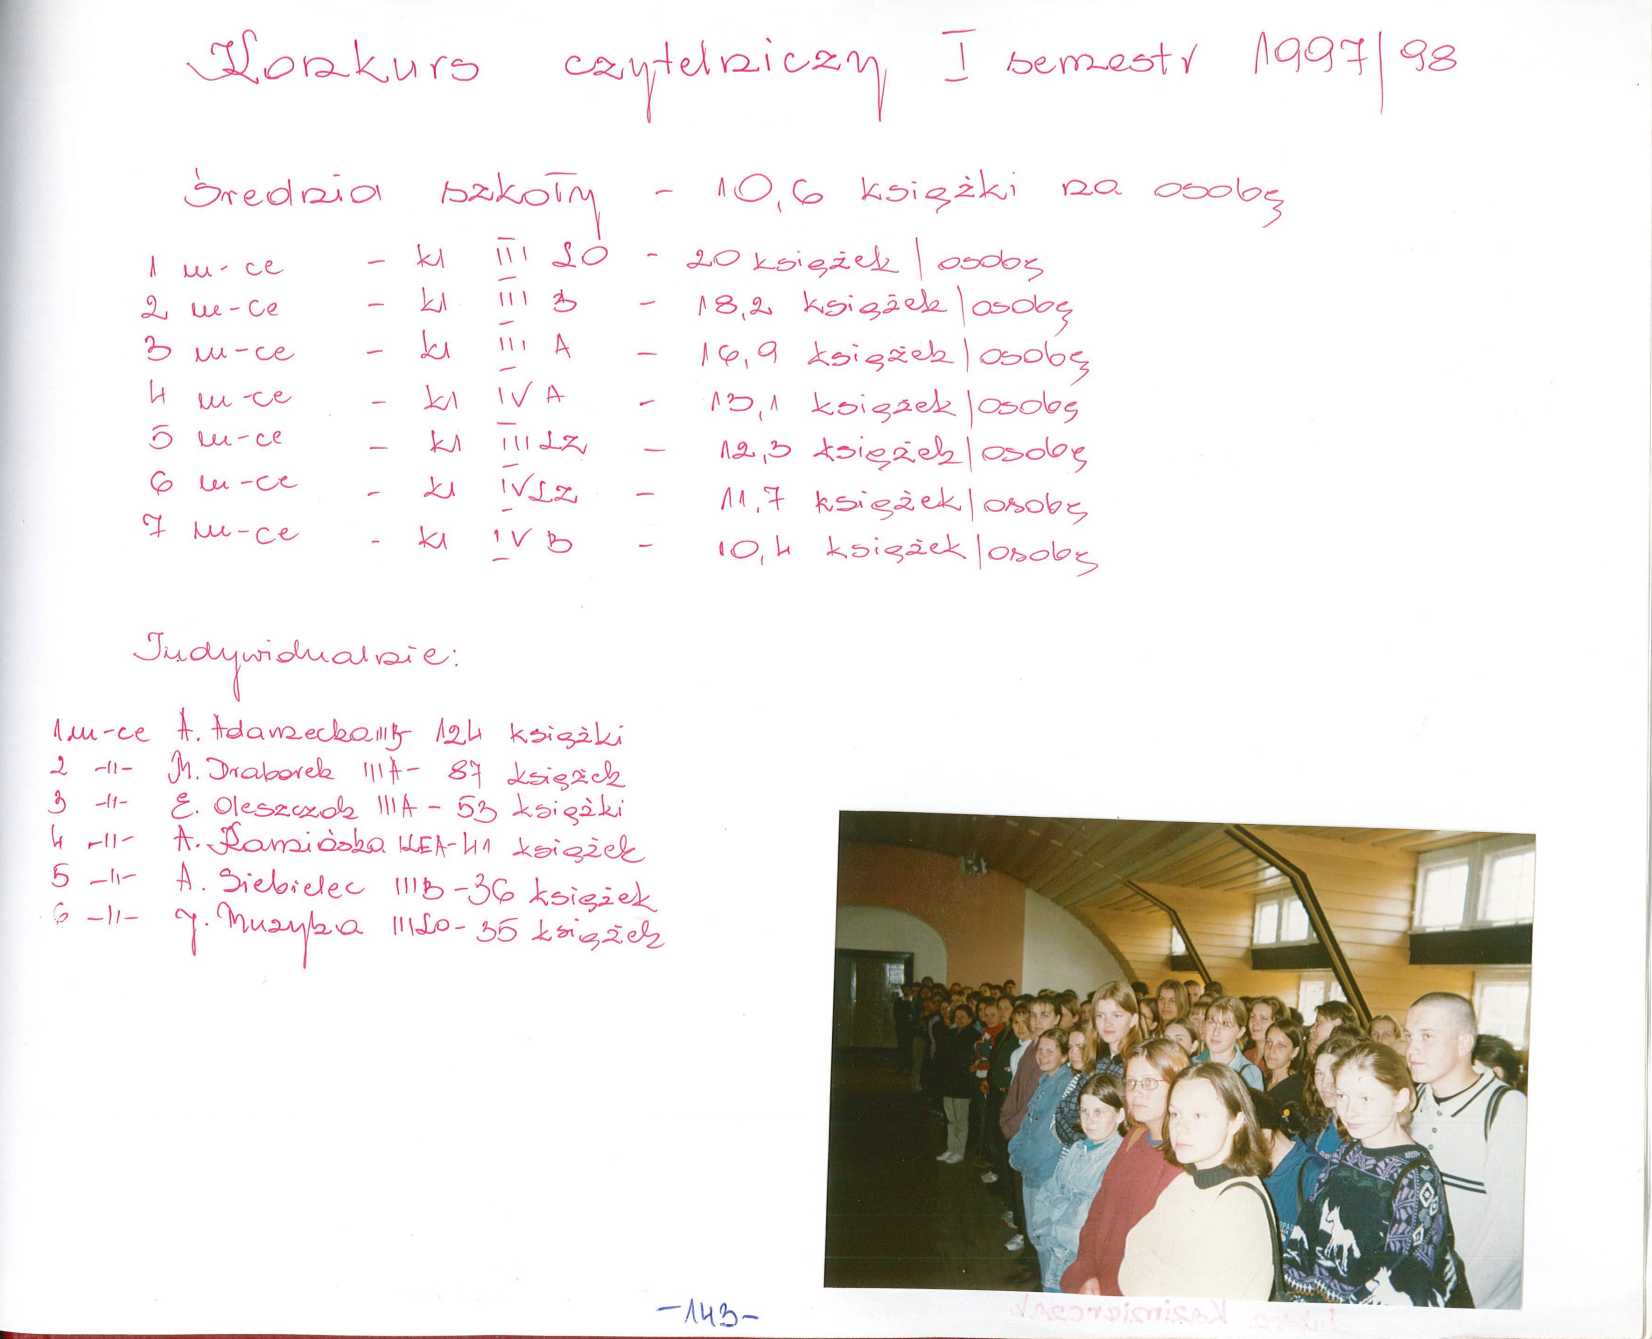 Konkurs czytelniczy I semestr 1997/98
Średnia szkoły - 10,6 książki na osobę
1 m-ce - kl III LO - 20 książek/osobę
2 m-ce - kl III B - 18,2 książek/osobę
3 m-ce - kl III A - 16,9 książek/osobę
4 m-ce - kl IV A - 13,1 książek/osobę
5 m-ce - kl III LZ - 12,3 książek/osobę
6 m-ce - kl IV LZ - 11,7 książek/osobę
7 m-ce - kl IV B - 10,4 książek/osobę
Indywidualnie:
1 m-ce A. Adamecka IIIB 124 książki
2 -||- M. Draborek IIIA - 87 książek
3 -||- E. Oleszczok IIIA - 53 książki
4 -||- A. Kamińska 41 książek
5 -||- A. Siebielec IIIB - 36 książek
6 -||- J. Muzyka IIILO - 35 książek
-143-